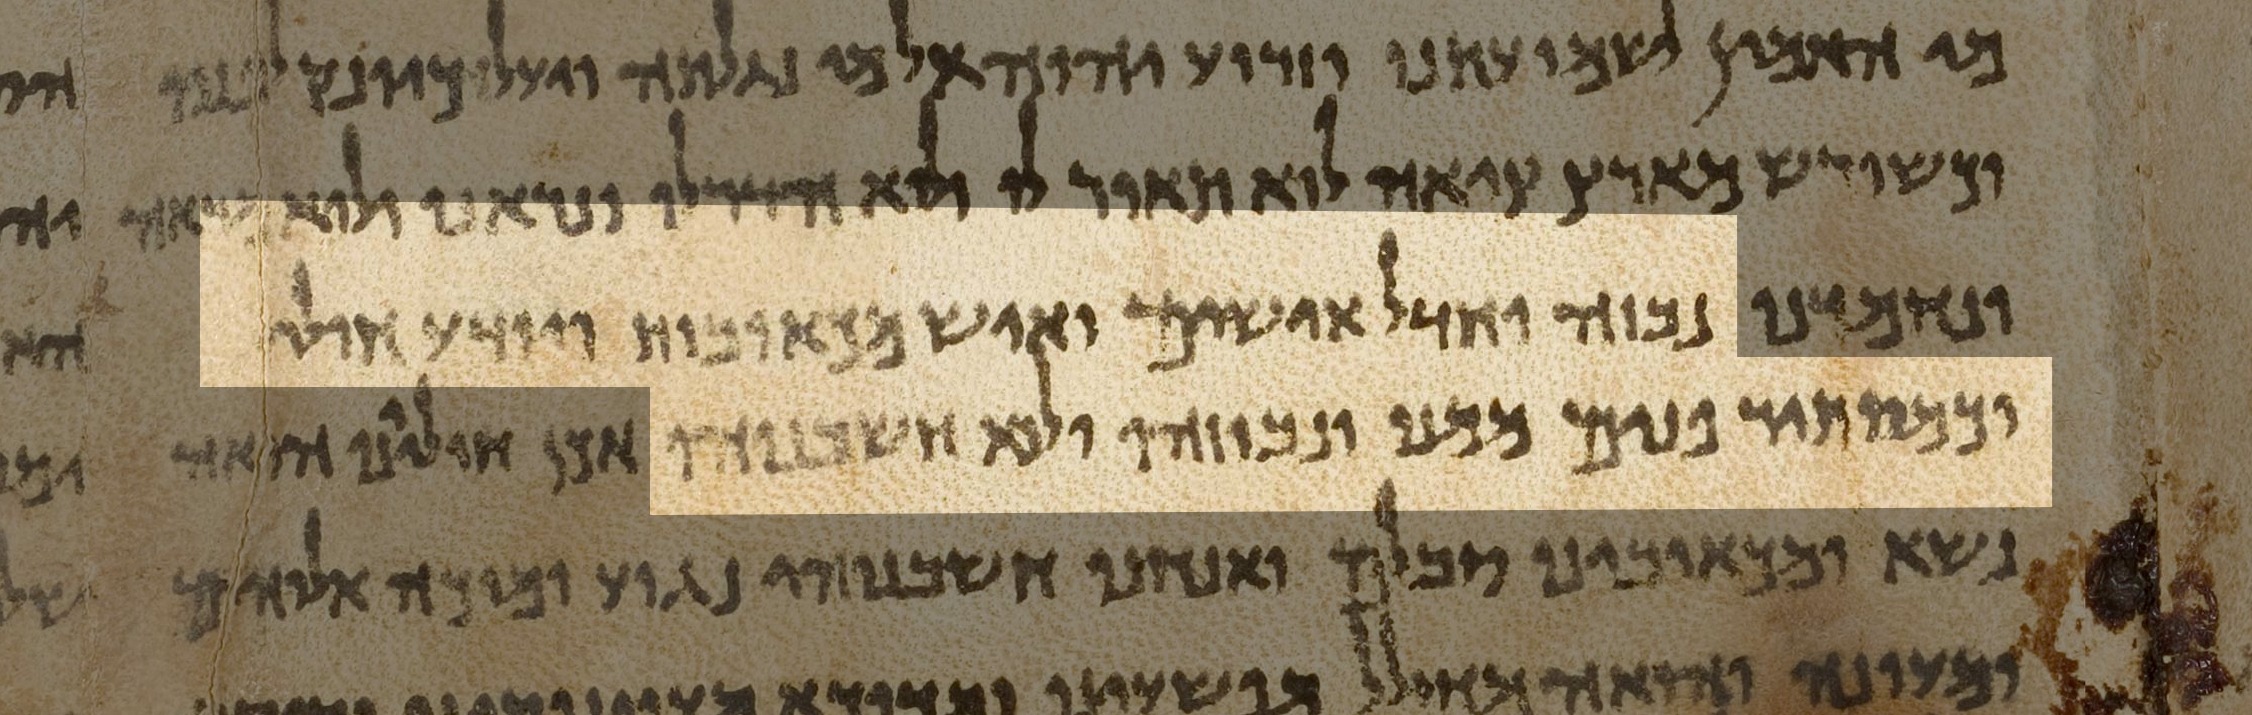 מי האמין לשמועתנו וזרוע יהוה אל מי נגלתה ויעל כיונק לפניו
וכשורש בארץ ציאה לוא תאור לו ולא הדר לו ונראנו ולוא מראה
ונחמדנו נבזה וחדל אישים ואיש מכאובות ויודע חולי
וכמסתיר פנים ממנו ונבוזהו ולא חשבנוהו אכן חוליינו הואה
נשא ומכאובינו סבלם ואנחנו חשבנוהו נגוע ומוכה אלוהים
ומעונה והואה מחולל מפשעינו ומדוכא מעוונותינו